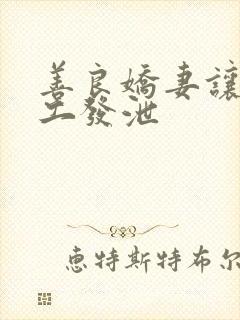 善良嬌妻讓
工發泄
恵特斯特布尔